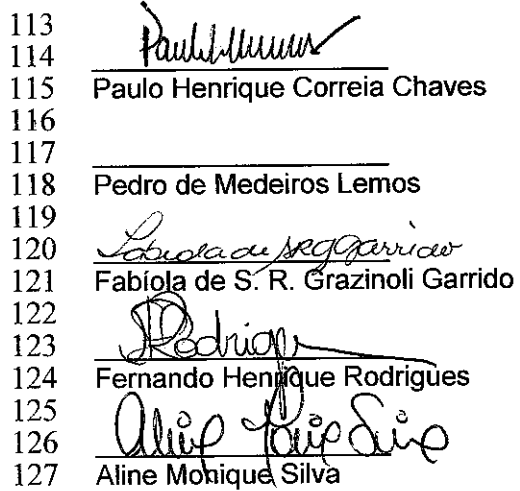 113
114
115 Paulo Henrique Correia Chaves
116
117
118 Pedro de Medeiros Lemos
119
120
121 Fabíola de S. R. Grazinoli Garrido
122
123 Rodrigu
124 Fernando Henrique Rodrigues
125
126 Aline
127 Aline Monique Silva